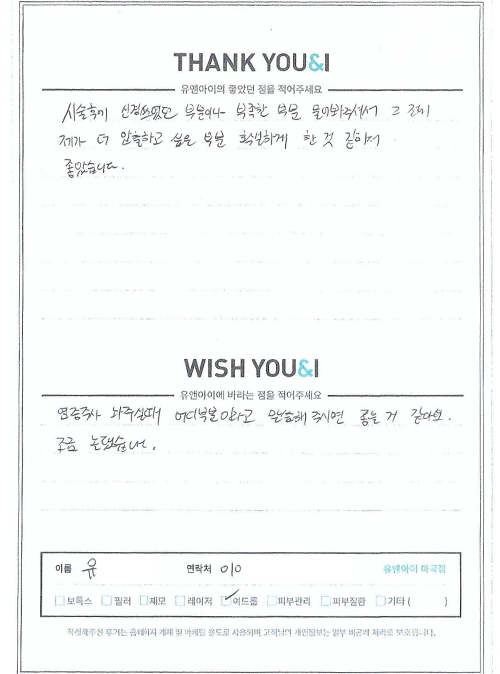 THANK YOU&I
유앤아이의 좋았던 점을 적어주세요
시술후에 신경쓰였던 부분이나 부족한 부분 물어봐주셔서 그 점이
제가 더 압출하고 싶은 부분 확실하게 한 것 같아서
좋았습니다.
WISH YOU&I
유앤아이에 바라는 점을 적어주세요
염증주사 놔주실때 어디부분이라고 말씀해 주시면 좋을 거 같아요.
조금 놀랬습니다.
이름 유 연락처 010 유앤아이 마곡점
보톡스 필러 제모 레이저 여드름 피부관리 피부질환 기타 ( )
작성해주신 후기는 홈페이지 게재 및 마케팅 용도로 사용되며 고객님의 개인정보는 일부 비공개 처리로 보호됩니다.